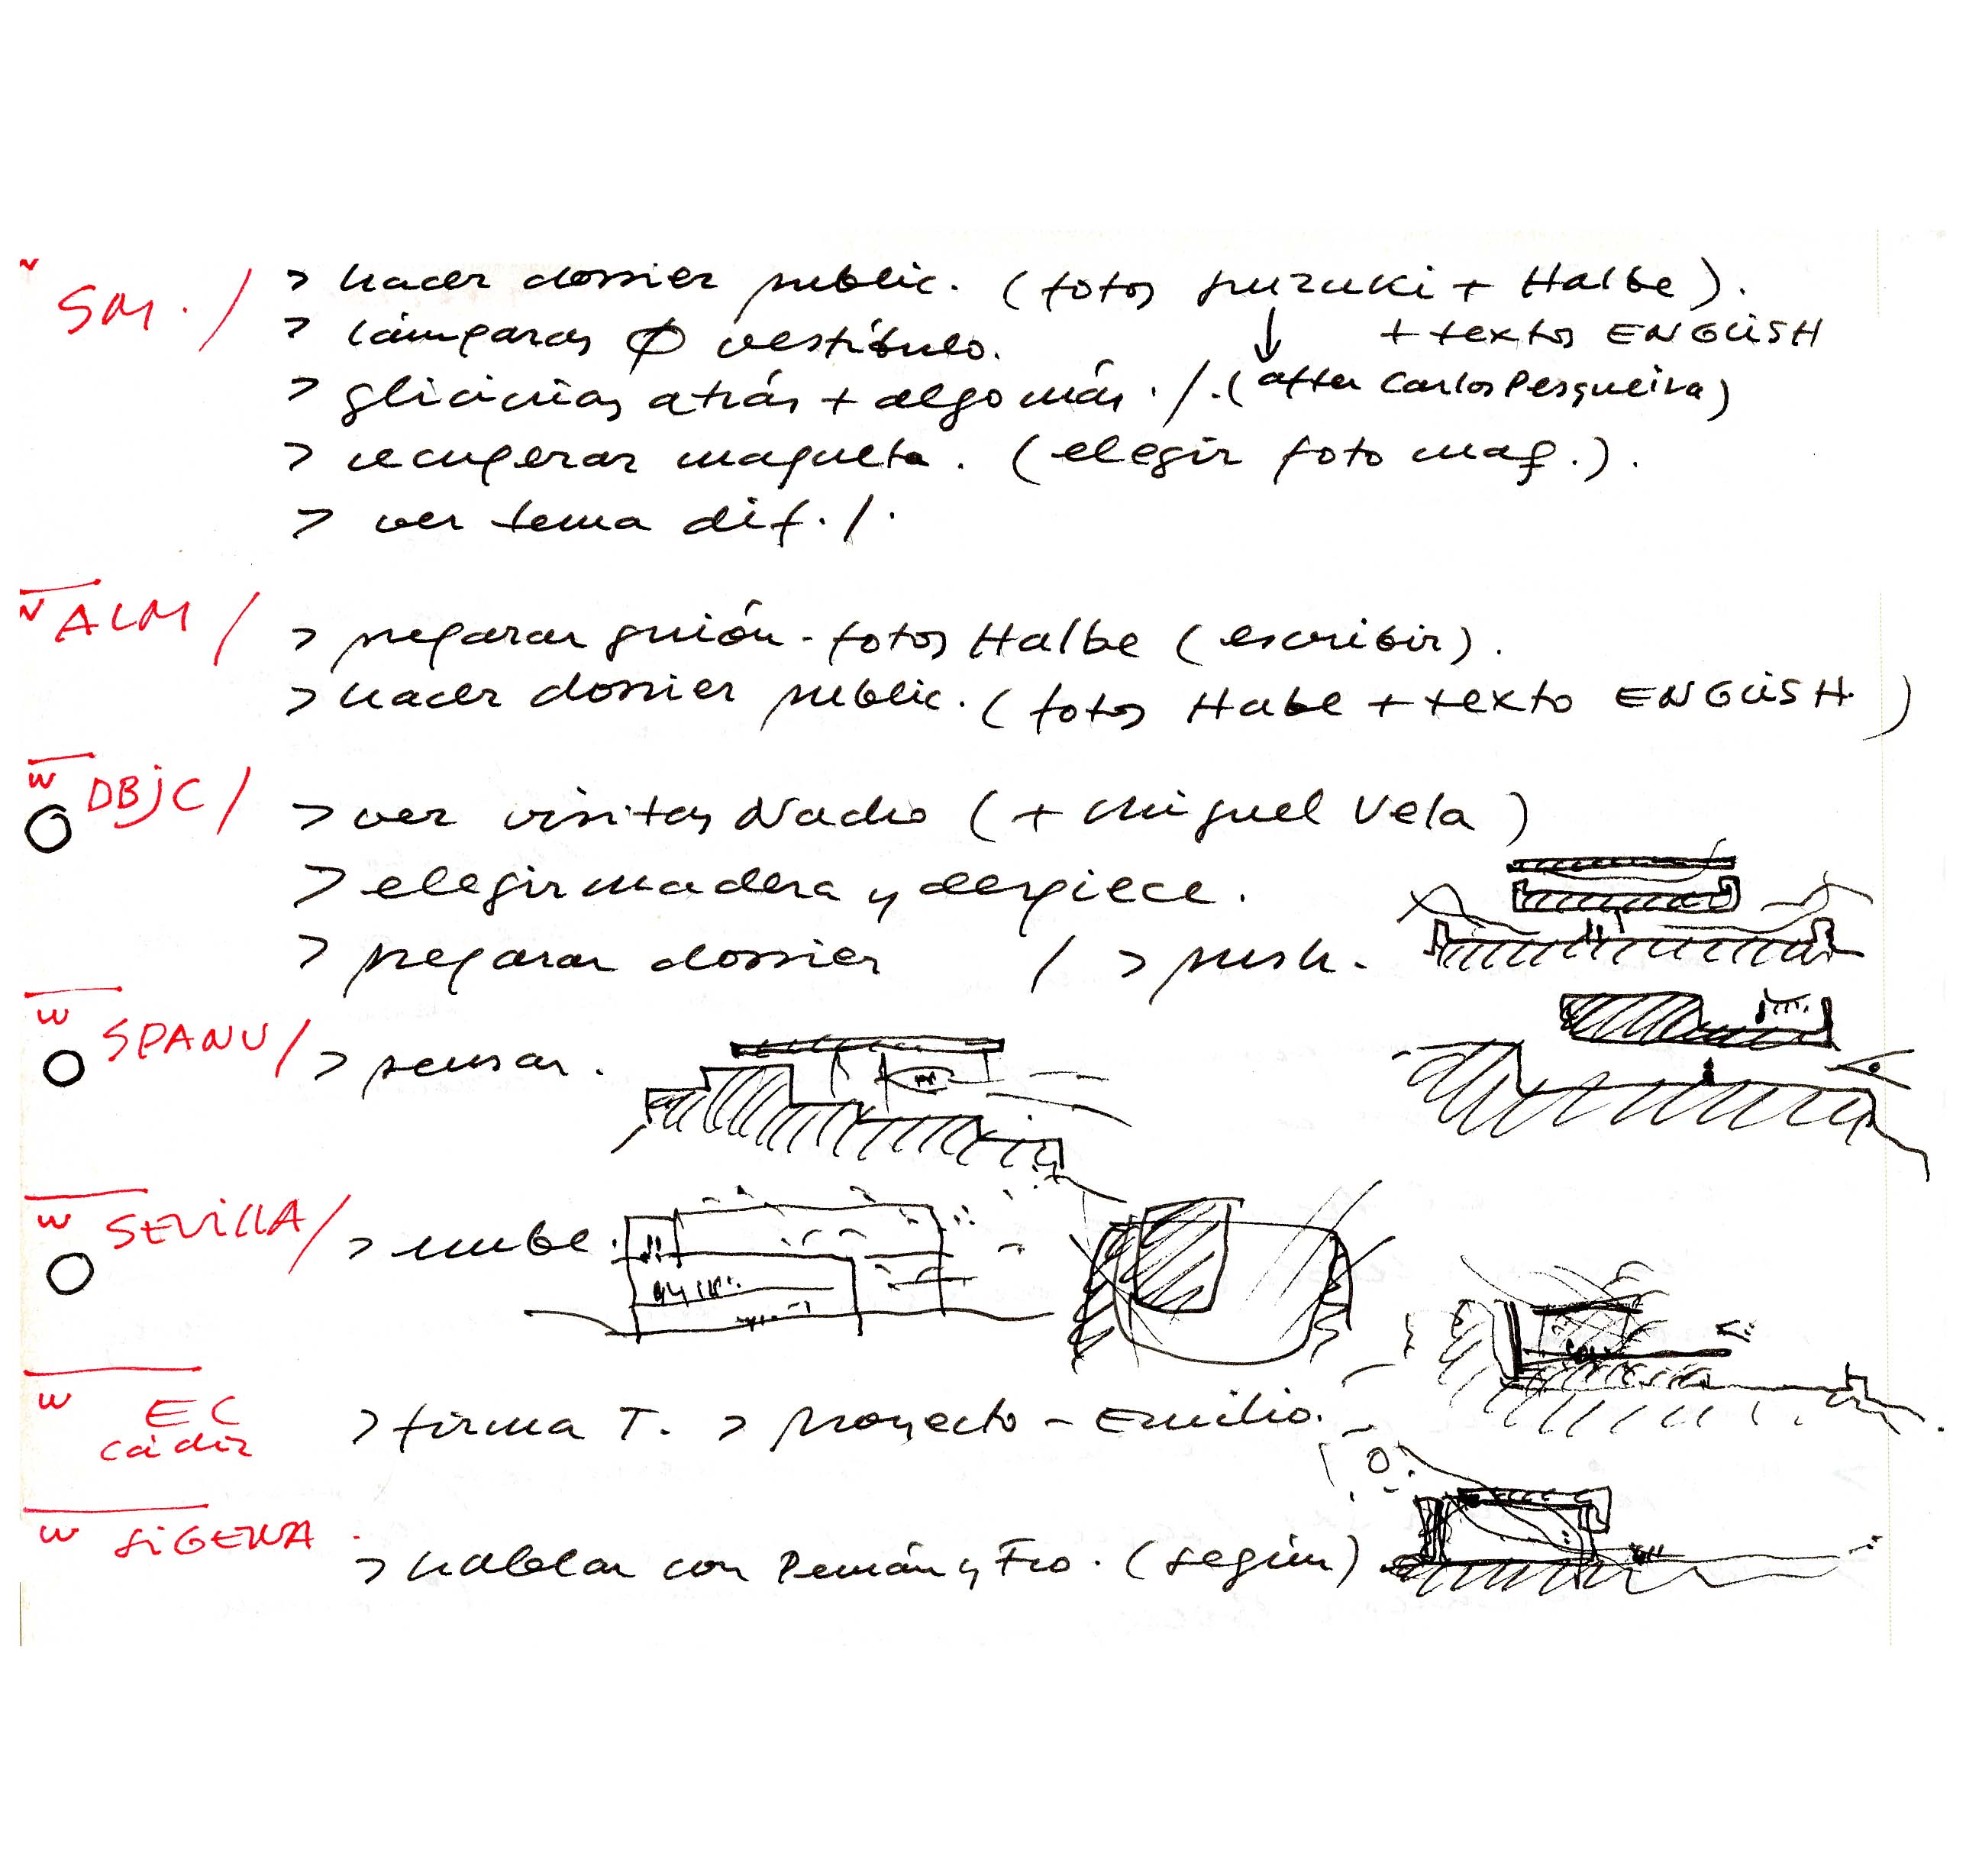 SM. / > hacer dossier public. (fotos Suzuki + Halbe).
> lámparas Ø vestíbulo. ↓ + textos ENGLISH
> glicinias atrás + algo más. /. (after Carlos Pesqueira)
> recuperar maqueta. (elegir foto maq.).
> ver tema dif. /.
N ALM / > preparar guión - fotos Halbe (escribir).
> hacer dossier public. (fotos Habe + texto ENGLISH)
W DBJC / > ver visitas Nacho (+ Miguel Vela)
> elegir madera y despiece.
> preparar dossier / > push.
W SPANU / > pensar.
W SEVILLA / > nube.
W EC > firma T. > proyecto - Emilio.
Cádiz
W SIGENA > hablar con Pemán y Fco. (según)